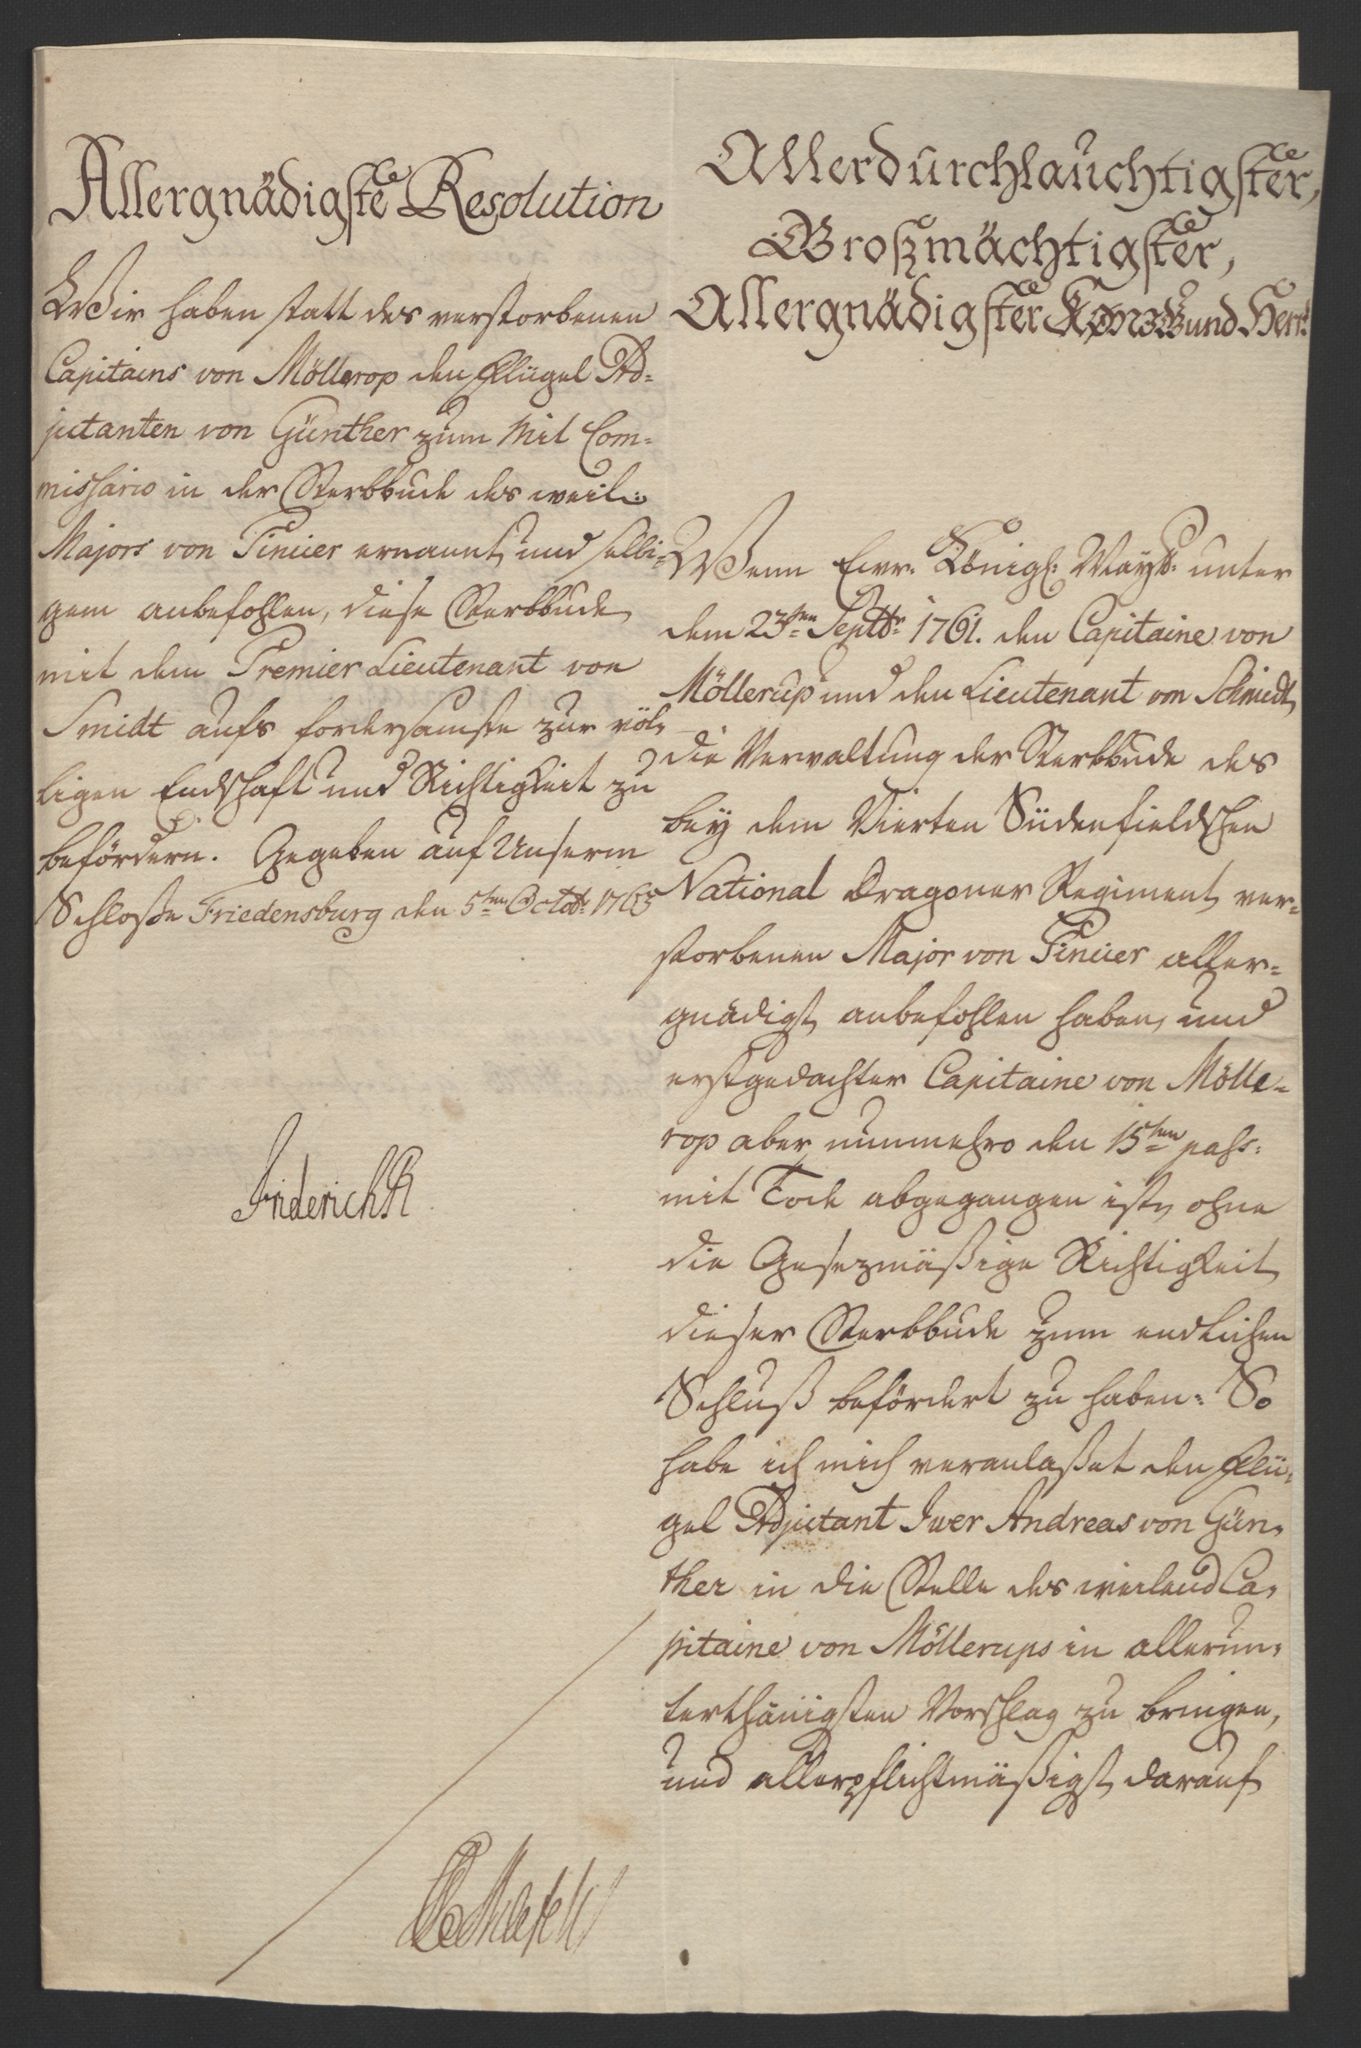 Allergnädigste Resolution
Wir haben statt des verstorbenen
Capitains von Möllerop den Flügel Ad-
jutanten von Günther zum Mit Com-
missario in der Sterbbude des weil:
Majors von Pincier ernannt, und selbi-
gem anbefohlen, diese Sterbbude
mit dem Premier Lieutenant von
Smidt aufs fordersamste zur völ-
ligen Endschaft und Richtigkeit zu
befördern. Gegeben auf Unserm
Schloße Friedensburg den 5ten Octobr: 1763
Friderich R
Allerdurchlauchtigster,
Großmächtigster,
Allergnädigster König und Herr!
Wenn Ewr. Königl: Maytt: unter
dem 23ten Septbr: 1761. den Capitaine von
Möllerup und den Lieutenant von Schmidt,
die Verwaltung der Sterbbude des
bey dem Vierten Südenfieldschen
National Dragoner Regiment ver-
storbenen Major von Pincier aller-
gnädigst anbefohlen haben, und
erstgedachter Capitaine von Mölle-
rop aber nunmehro den 15ten pass:
mit Tode abgegangen ist, ohne
die Gesezmäßige Richtigkeit
dieser Sterbbude zum endlichen
Schluß befördert zu haben: So
habe ich mich veranlaßet den Flü-
gel Adjutant Iver Andreas von Gün-
ther in die Stelle des weilend Ca-
pitaine von Möllerups in allerun-
terthänigsten Vorschlag zu bringen,
und allerpflichtmäßigst darauf